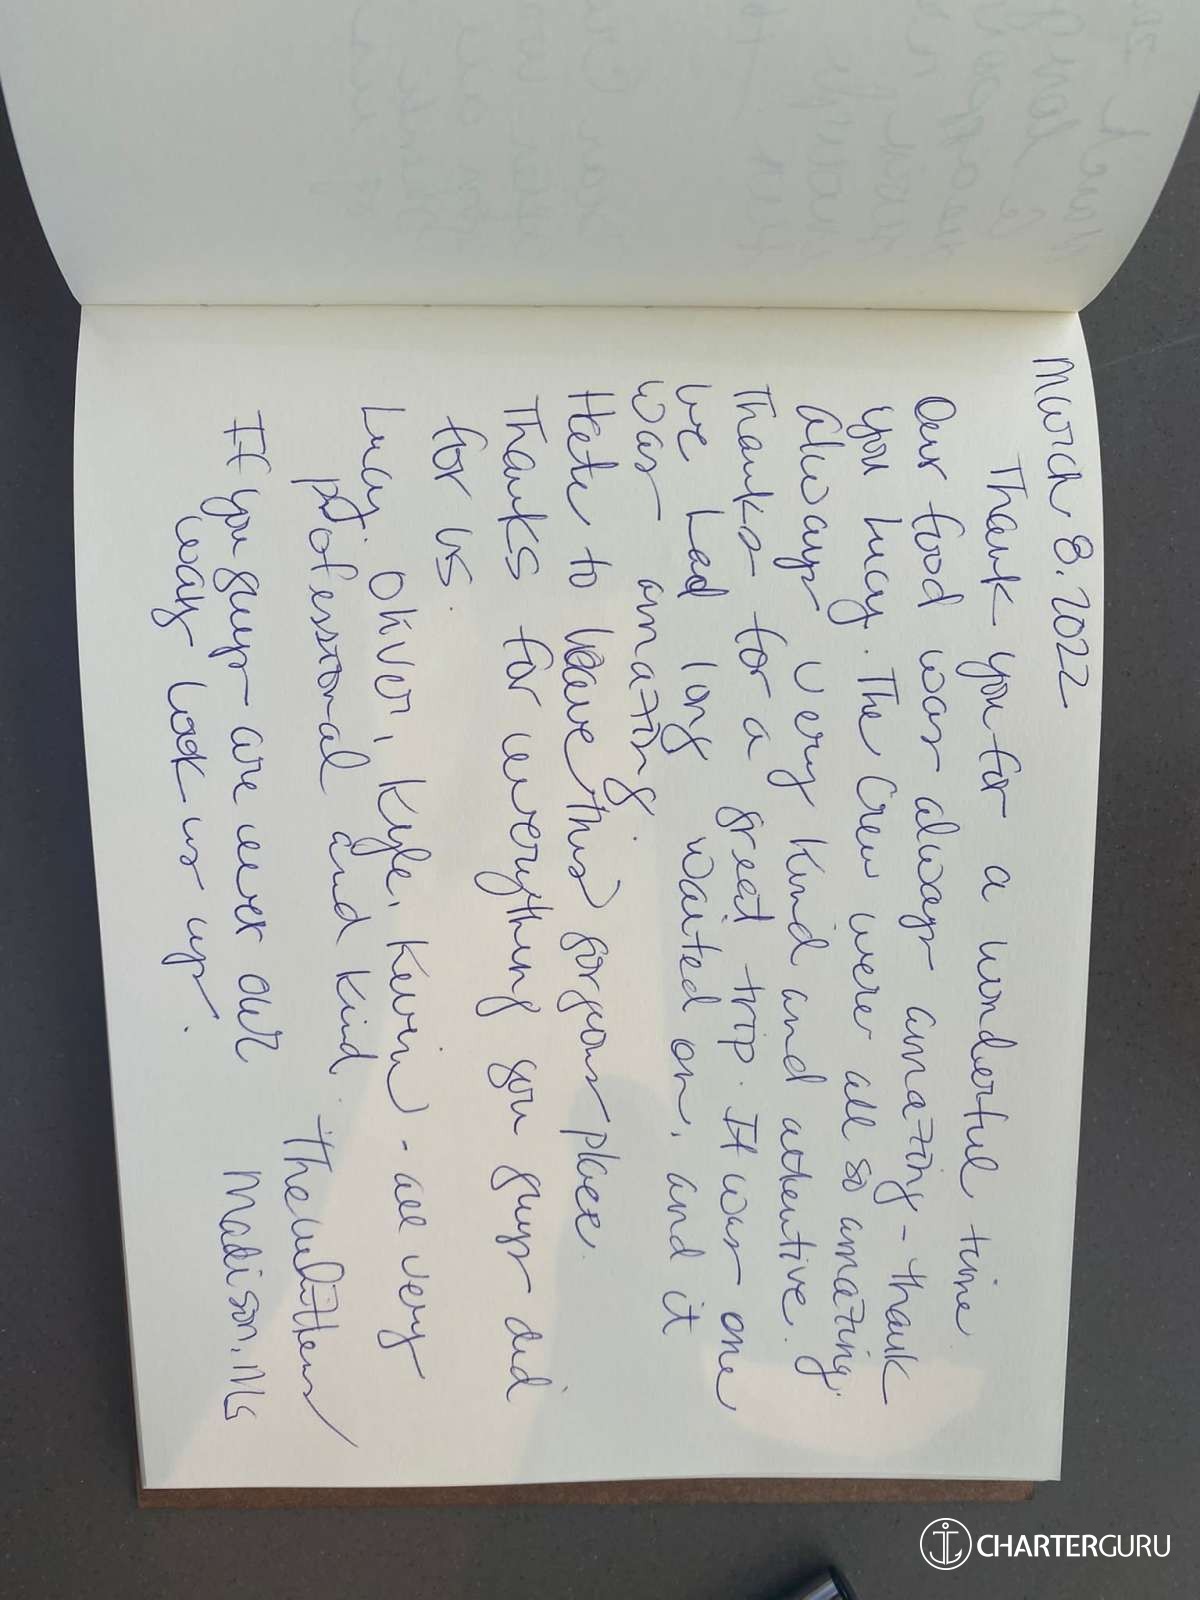 March 8. 2022
Thank you for a wonderful time
Our food was always amazing - thank
you Lucy. The Crew were all so amazing.
Always very kind and attentive.
Thanks for a great trip. It was one
we had long waited on, and it
was amazing.
Hate to leave this gorgous place.
Thanks for everything you guys did
for us.
Lucy, Oliver, Kyle, Kevin - all very
professional and kind. The
If you guys are ever our
way look us up.
Madison, Ms
CHARTERGURU